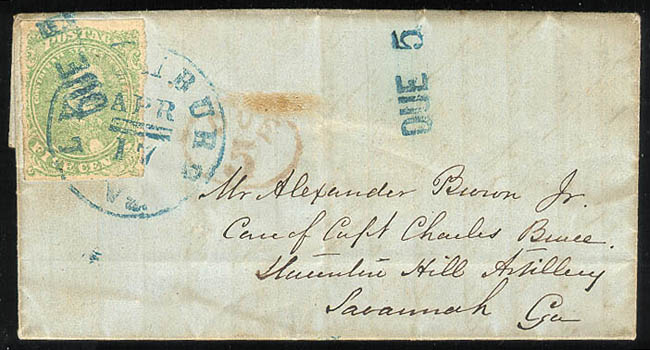 BURG
APR
17
VA
CENTS
DUE 5
Mr Alexander Brown Jr.
Care of Capt Charles Bruce.
Staunton Hill Artillery
Savannah Ga